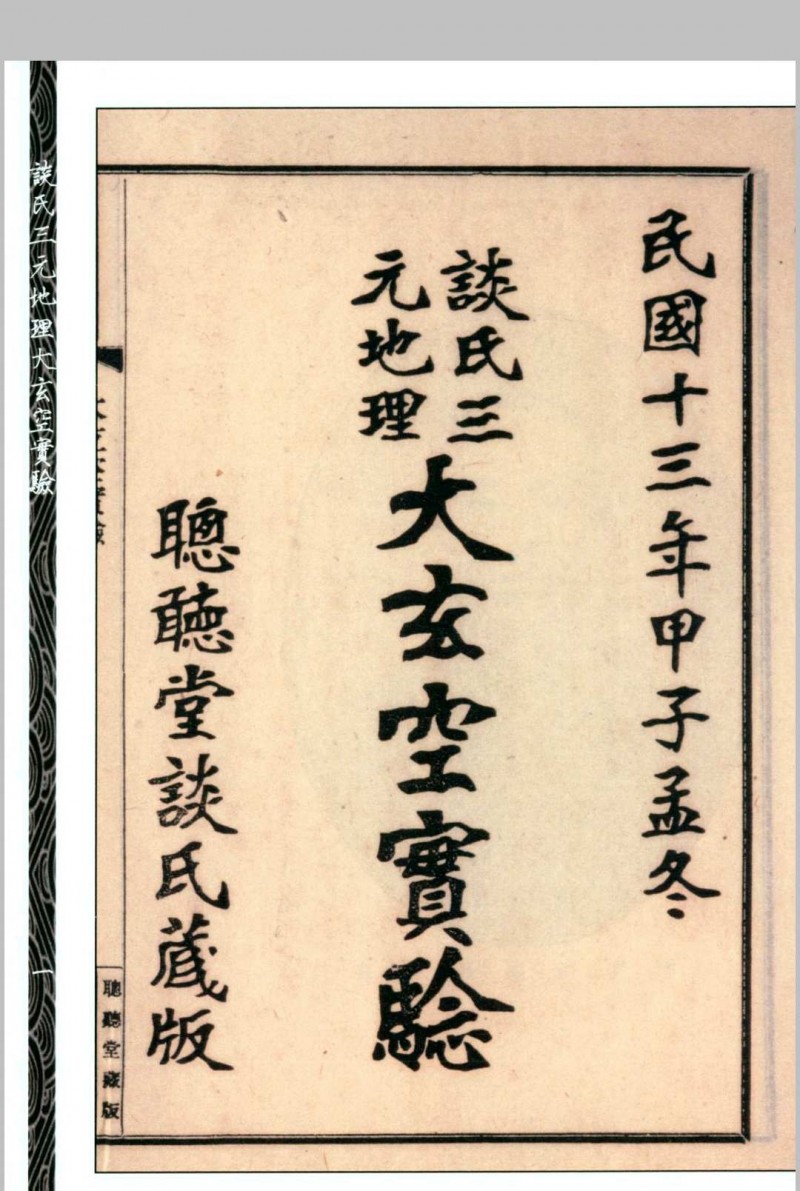 民國十三年甲子孟冬
談氏三
元地理
大玄空實驗
聰聽堂談氏蔵版
聰聽堂藏版
談氏三元地理大玄空實驗
一